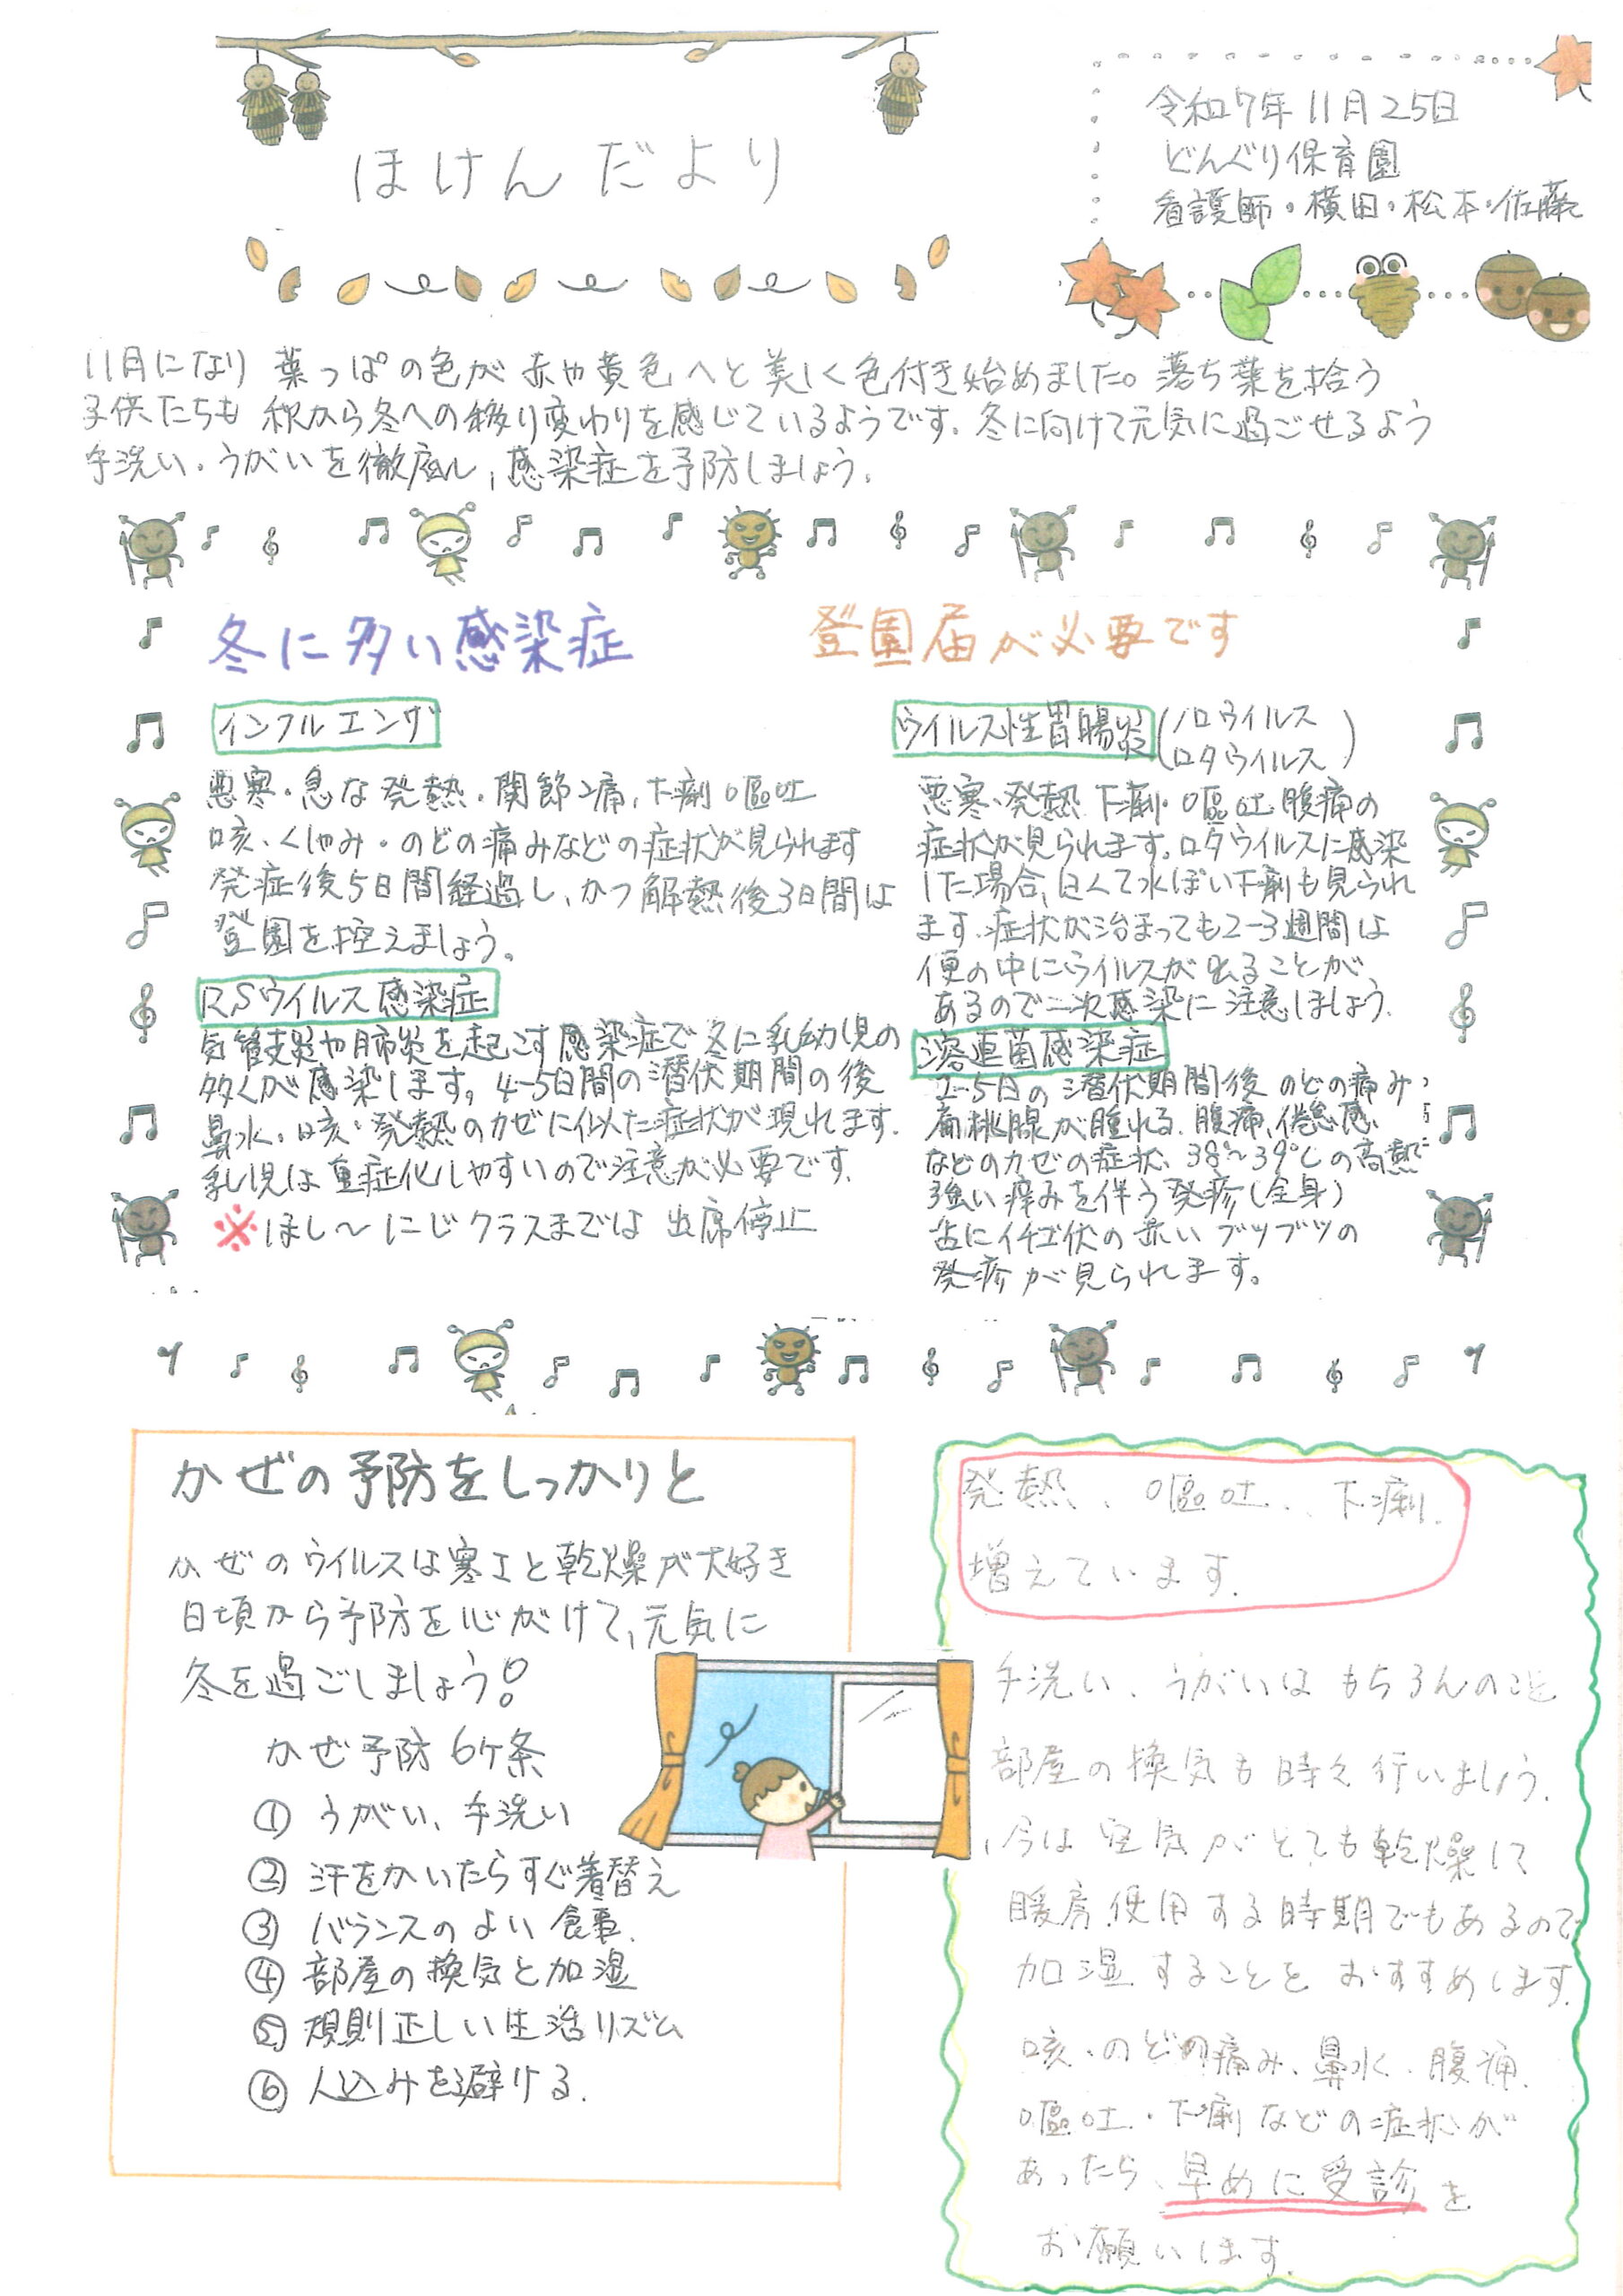 ほけんだより
令和7年11月25日
どんぐり保育園
看護師・横田・松本・佐藤
11月になり 葉っぱの色が 赤や黄色へと美しく色付き始めました。落ち葉を拾う
子供たちも 秋から冬への移り変わりを感じているようです。冬に向けて元気に過ごせるよう
手洗い・うがいを徹底し、感染症を予防しましょう。
冬に多い感染症
登園届が必要です
インフルエンザ
悪寒・急な発熱・関節痛、下痢 嘔吐
咳、くしゃみ・のどの痛みなどの症状が見られます
発症後5日間経過し、かつ解熱後3日間は
登園を控えましょう。
RSウイルス感染症
気管支炎や肺炎を起こす感染症で冬に乳幼児の
多くが感染します。4-5日間の潜伏期間の後
鼻水・咳・発熱のカゼに似た症状が現れます.
乳児は重症化しやすいので注意が必要です.
※ほし〜にじクラスまでは 出席停止
ウイルス性胃腸炎(ノロウイルス
ロタウイルス)
悪寒・発熱 下痢・嘔吐 腹痛の
症状が見られます。ロタウイルスに感染
した場合、白くて水ぽい下痢も見られ
ます.症状が治まっても2-3週間は
便の中にウイルスが出ることが
あるので二次感染に注意しましょう.
溶連菌感染症
2-5日の潜伏期間後 のどの痛み、
扁桃腺が腫れる、腹痛、倦怠感
などのカゼの症状、38〜39℃の高熱で
強い痒みを伴う発疹(全身)
舌にイチゴ状の赤いブツブツの
発疹が見られます。
かぜの予防をしっかりと
かぜのウイルスは寒さと乾燥が大好き
日頃から予防を心がけて、元気に
冬を過ごしましょう!
かぜ予防 6ヶ条
① うがい、手洗い
② 汗をかいたらすぐ着替え
③ バランスのよい食事.
④ 部屋の換気と加湿
⑤ 規則正しい生活リズム
⑥ 人込みを避ける.
発熱、嘔吐、下痢.
増えています.
手洗い、うがいはもちろんのこと
部屋の換気も時々行いましょう.
今は空気がとても乾燥して
暖房使用する時期でもあるので
加湿することをおすすめします.
咳・のどの痛み、鼻水、腹痛.
嘔吐・下痢などの症状が
あったら、早めに受診を
お願いします.